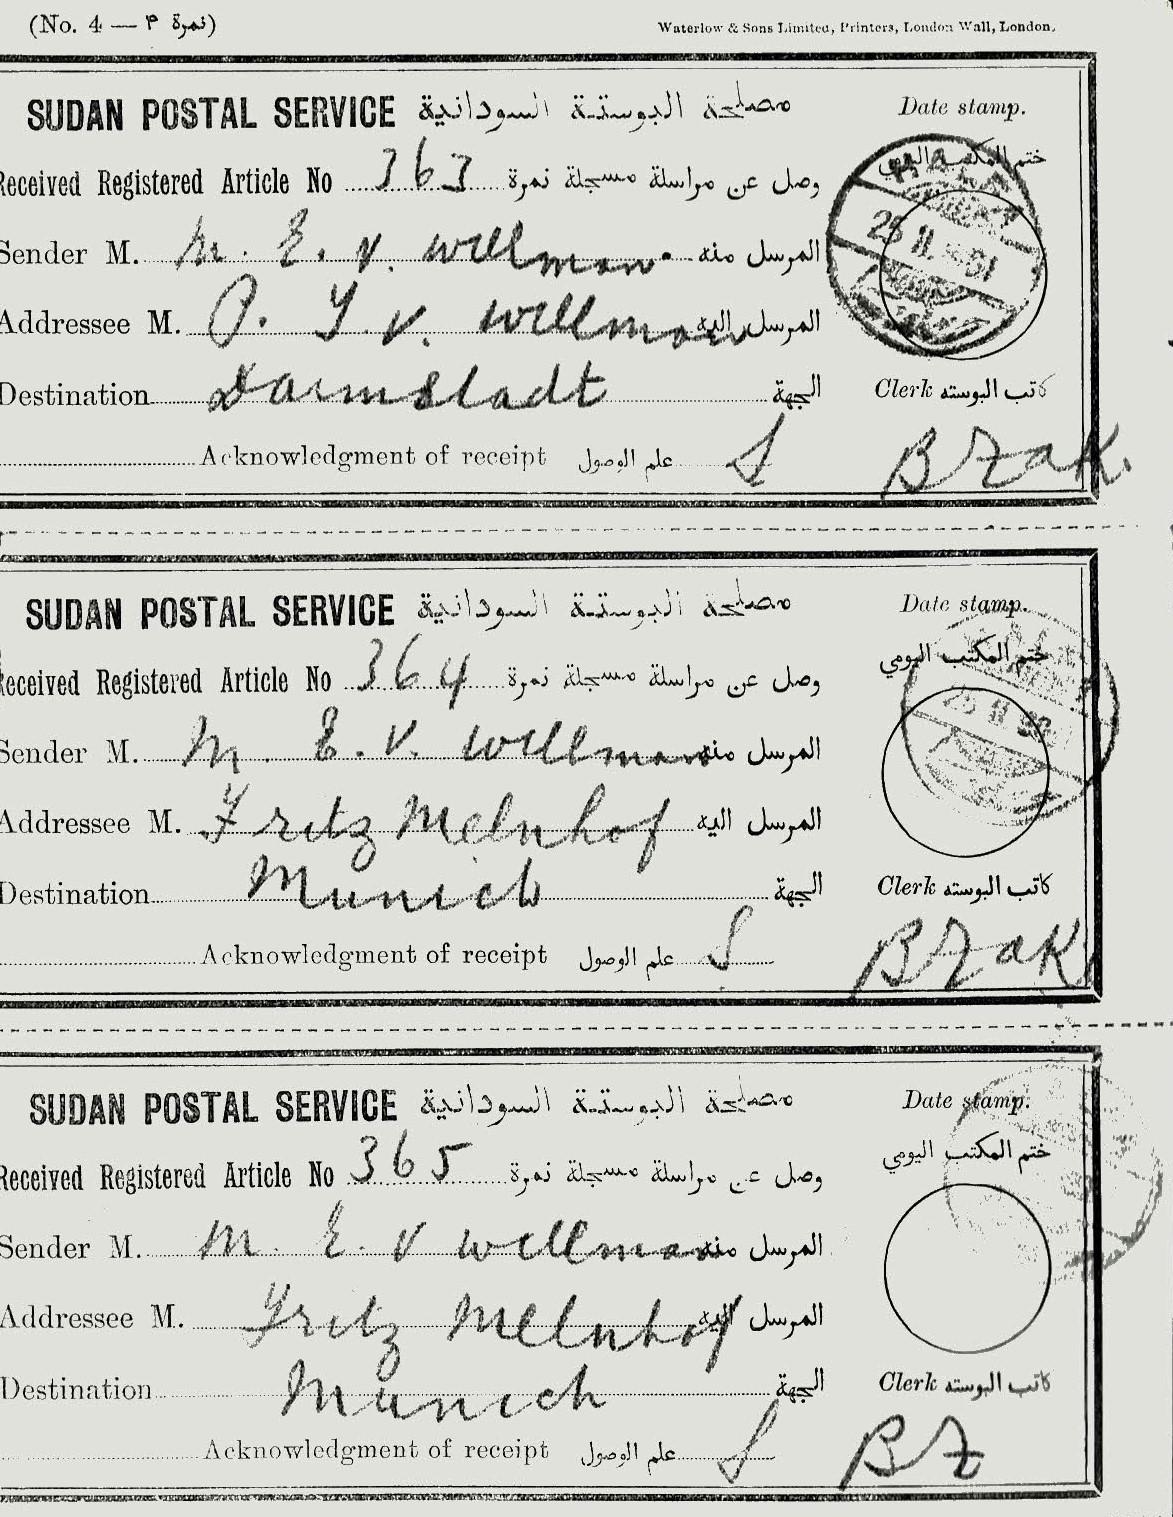 (No. 4 — نمرة ٣)
Waterlow & Sons Limited, Printers, London Wall, London.
SUDAN POSTAL SERVICE مصلحة البوستة السودانية
Date stamp.
ختم المكتب اليومي
Received Registered Article No 363 وصل عن مراسلة مسجلة نمرة
Sender M. M. E. v. Willman المرسل منه
Addressee M. P. Y. v. Willman المرسل اليه
Destination Darmstadt الجهة
Clerk كاتب البوسته
Acknowledgment of receipt علم الوصول
BZak.
SUDAN POSTAL SERVICE مصلحة البوستة السودانية
Date stamp.
ختم المكتب اليومي
Received Registered Article No 364 وصل عن مراسلة مسجلة نمرة
Sender M. M. E. V. Willman المرسل منه
Addressee M. Fritz Melnhof المرسل اليه
Destination Munich الجهة
Clerk كاتب البوسته
Acknowledgment of receipt علم الوصول
BZak
SUDAN POSTAL SERVICE مصلحة البوستة السودانية
Date stamp.
ختم المكتب اليومي
Received Registered Article No 365 وصل عن مراسلة مسجلة نمرة
Sender M. M. E. V Willman المرسل منه
Addressee M. Fritz Melnhof المرسل اليه
Destination Munich الجهة
Clerk كاتب البوسته
Acknowledgment of receipt علم الوصول
BZ